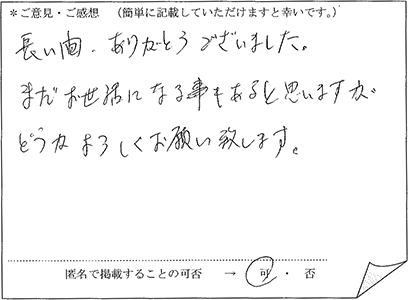 ＊ご意見・ご感想　（簡単に記載していただけますと幸いです。）
長い間、ありがとうございました。
まだお世話になる事もあると思いますが
どうかよろしくお願い致します。
匿名で掲載することの可否　→　可　・　否